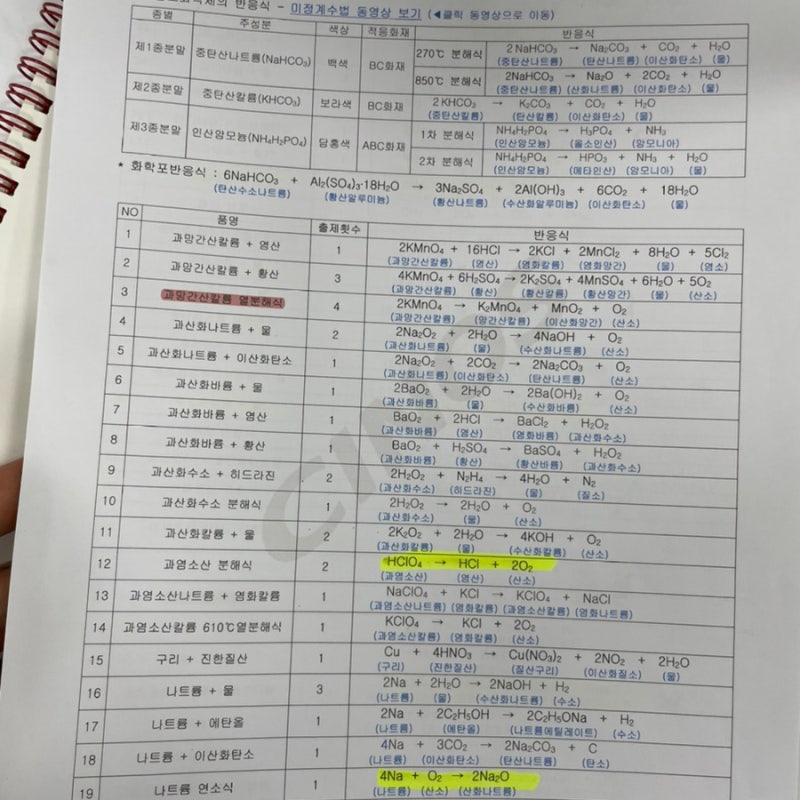 의 반응식 - 미정계수법 동영상 보기 (◀클릭 동영상으로 이동)
종별 주성분 색상 적응화재 반응식
제1종분말 중탄산나트륨(NaHCO₃) 백색 BC화재 270℃ 분해식 2NaHCO₃ → Na₂CO₃ + CO₂ + H₂O
(중탄산나트륨) (탄산나트륨) (이산화탄소) (물)
850℃ 분해식 2NaHCO₃ → Na₂O + 2CO₂ + H₂O
(중탄산나트륨) (산화나트륨) (이산화탄소) (물)
제2종분말 중탄산칼륨(KHCO₃) 보라색 BC화재 2KHCO₃ → K₂CO₃ + CO₂ + H₂O
(중탄산칼륨) (탄산칼륨) (이산화탄소) (물)
제3종분말 인산암모늄(NH₄H₂PO₄) 담홍색 ABC화재 1차 분해식 NH₄H₂PO₄ → H₃PO₄ + NH₃
(인산암모늄) (올소인산) (암모니아)
2차 분해식 NH₄H₂PO₄ → HPO₃ + NH₃ + H₂O
(인산암모늄) (메타인산) (암모니아) (물)
* 화학포반응식 : 6NaHCO₃ + Al₂(SO₄)₃·18H₂O → 3Na₂SO₄ + 2Al(OH)₃ + 6CO₂ + 18H₂O
(탄산수소나트륨) (황산알루미늄) (황산나트륨) (수산화알루미늄) (이산화탄소) (물)
NO 품명 출제횟수 반응식
1 과망간산칼륨 + 염산 1 2KMnO₄ + 16HCl → 2KCl + 2MnCl₂ + 8H₂O + 5Cl₂
(과망간산칼륨) (염산) (염화칼륨) (염화망간) (물) (염소)
2 과망간산칼륨 + 황산 3 4KMnO₄ + 6H₂SO₄ → 2K₂SO₄ + 4MnSO₄ + 6H₂O + 5O₂
(과망간산칼륨) (황산) (황산칼륨) (황산망간) (물) (산소)
3 과망간산칼륨 열분해식 4 2KMnO₄ → K₂MnO₄ + MnO₂ + O₂
(과망간산칼륨) (망간산칼륨) (이산화망간) (산소)
4 과산화나트륨 + 물 2 2Na₂O₂ + 2H₂O → 4NaOH + O₂
(과산화나트륨) (물) (수산화나트륨) (산소)
5 과산화나트륨 + 이산화탄소 1 2Na₂O₂ + 2CO₂ → 2Na₂CO₃ + O₂
(과산화나트륨) (이산화탄소) (탄산나트륨) (산소)
6 과산화바륨 + 물 1 2BaO₂ + 2H₂O → 2Ba(OH)₂ + O₂
(과산화바륨) (물) (수산화바륨) (산소)
7 과산화바륨 + 염산 1 BaO₂ + 2HCl → BaCl₂ + H₂O₂
(과산화바륨) (염산) (염화바륨) (과산화수소)
8 과산화바륨 + 황산 1 BaO₂ + H₂SO₄ → BaSO₄ + H₂O₂
(과산화바륨) (황산) (황산바륨) (과산화수소)
9 과산화수소 + 히드라진 2 2H₂O₂ + N₂H₄ → 4H₂O + N₂
(과산화수소) (히드라진) (물) (질소)
10 과산화수소 분해식 1 2H₂O₂ → 2H₂O + O₂
(과산화수소) (물) (산소)
11 과산화칼륨 + 물 2 2K₂O₂ + 2H₂O → 4KOH + O₂
(과산화칼륨) (물) (수산화칼륨) (산소)
12 과염소산 분해식 2 HClO₄ → HCl + 2O₂
(과염소산) (염산) (산소)
13 과염소산나트륨 + 염화칼륨 1 NaClO₄ + KCl → KClO₄ + NaCl
(과염소산나트륨) (염화칼륨) (과염소산칼륨) (염화나트륨)
14 과염소산칼륨 610℃열분해식 1 KClO₄ → KCl + 2O₂
(과염소산칼륨) (염화칼륨) (산소)
15 구리 + 진한질산 1 Cu + 4HNO₃ → Cu(NO₃)₂ + 2NO₂ + 2H₂O
(구리) (진한질산) (질산구리) (이산화질소) (물)
16 나트륨 + 물 3 2Na + 2H₂O → 2NaOH + H₂
(나트륨) (물) (수산화나트륨) (수소)
17 나트륨 + 에탄올 1 2Na + 2C₂H₅OH → 2C₂H₅ONa + H₂
(나트륨) (에탄올) (나트륨에틸레이트) (수소)
18 나트륨 + 이산화탄소 1 4Na + 3CO₂ → 2Na₂CO₃ + C
(나트륨) (이산화탄소) (탄산나트륨) (탄소)
19 나트륨 연소식 1 4Na + O₂ → 2Na₂O
(나트륨) (산소) (산화나트륨)